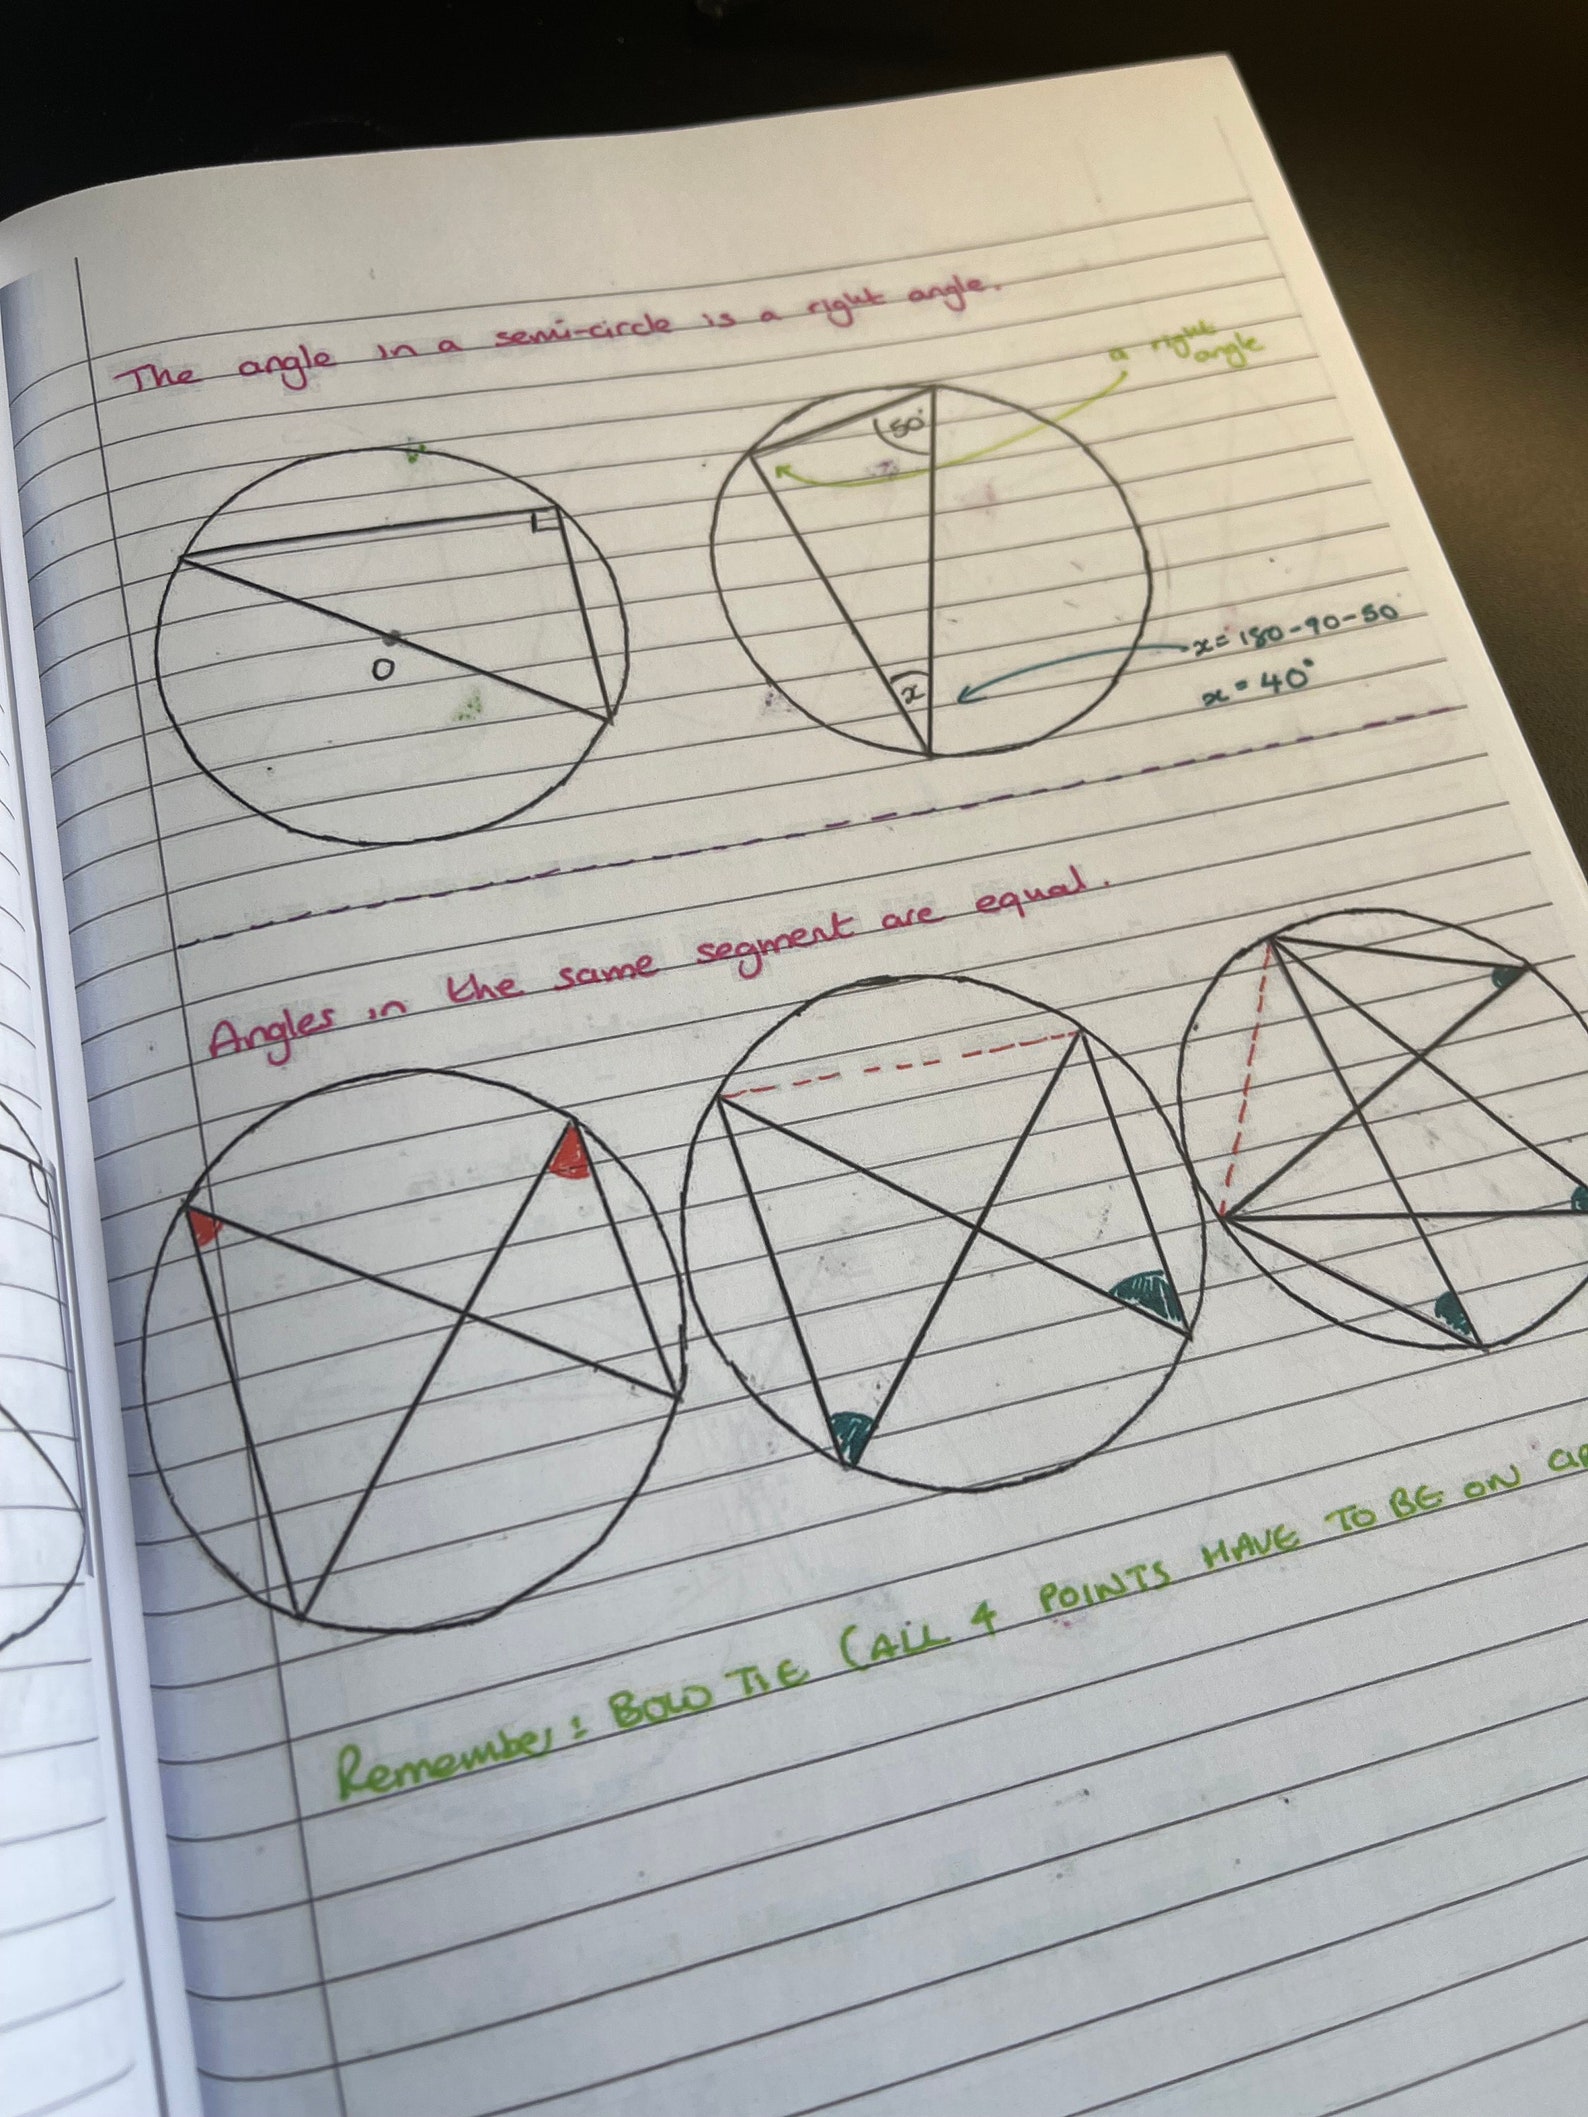 The angle in a semi-circle is a right angle.
a right
angle
50°
O
x
x = 180-90-50
x = 40°
Angles in the same segment are equal.
Remember: BOW TIE (ALL 4 POINTS HAVE TO BE ON